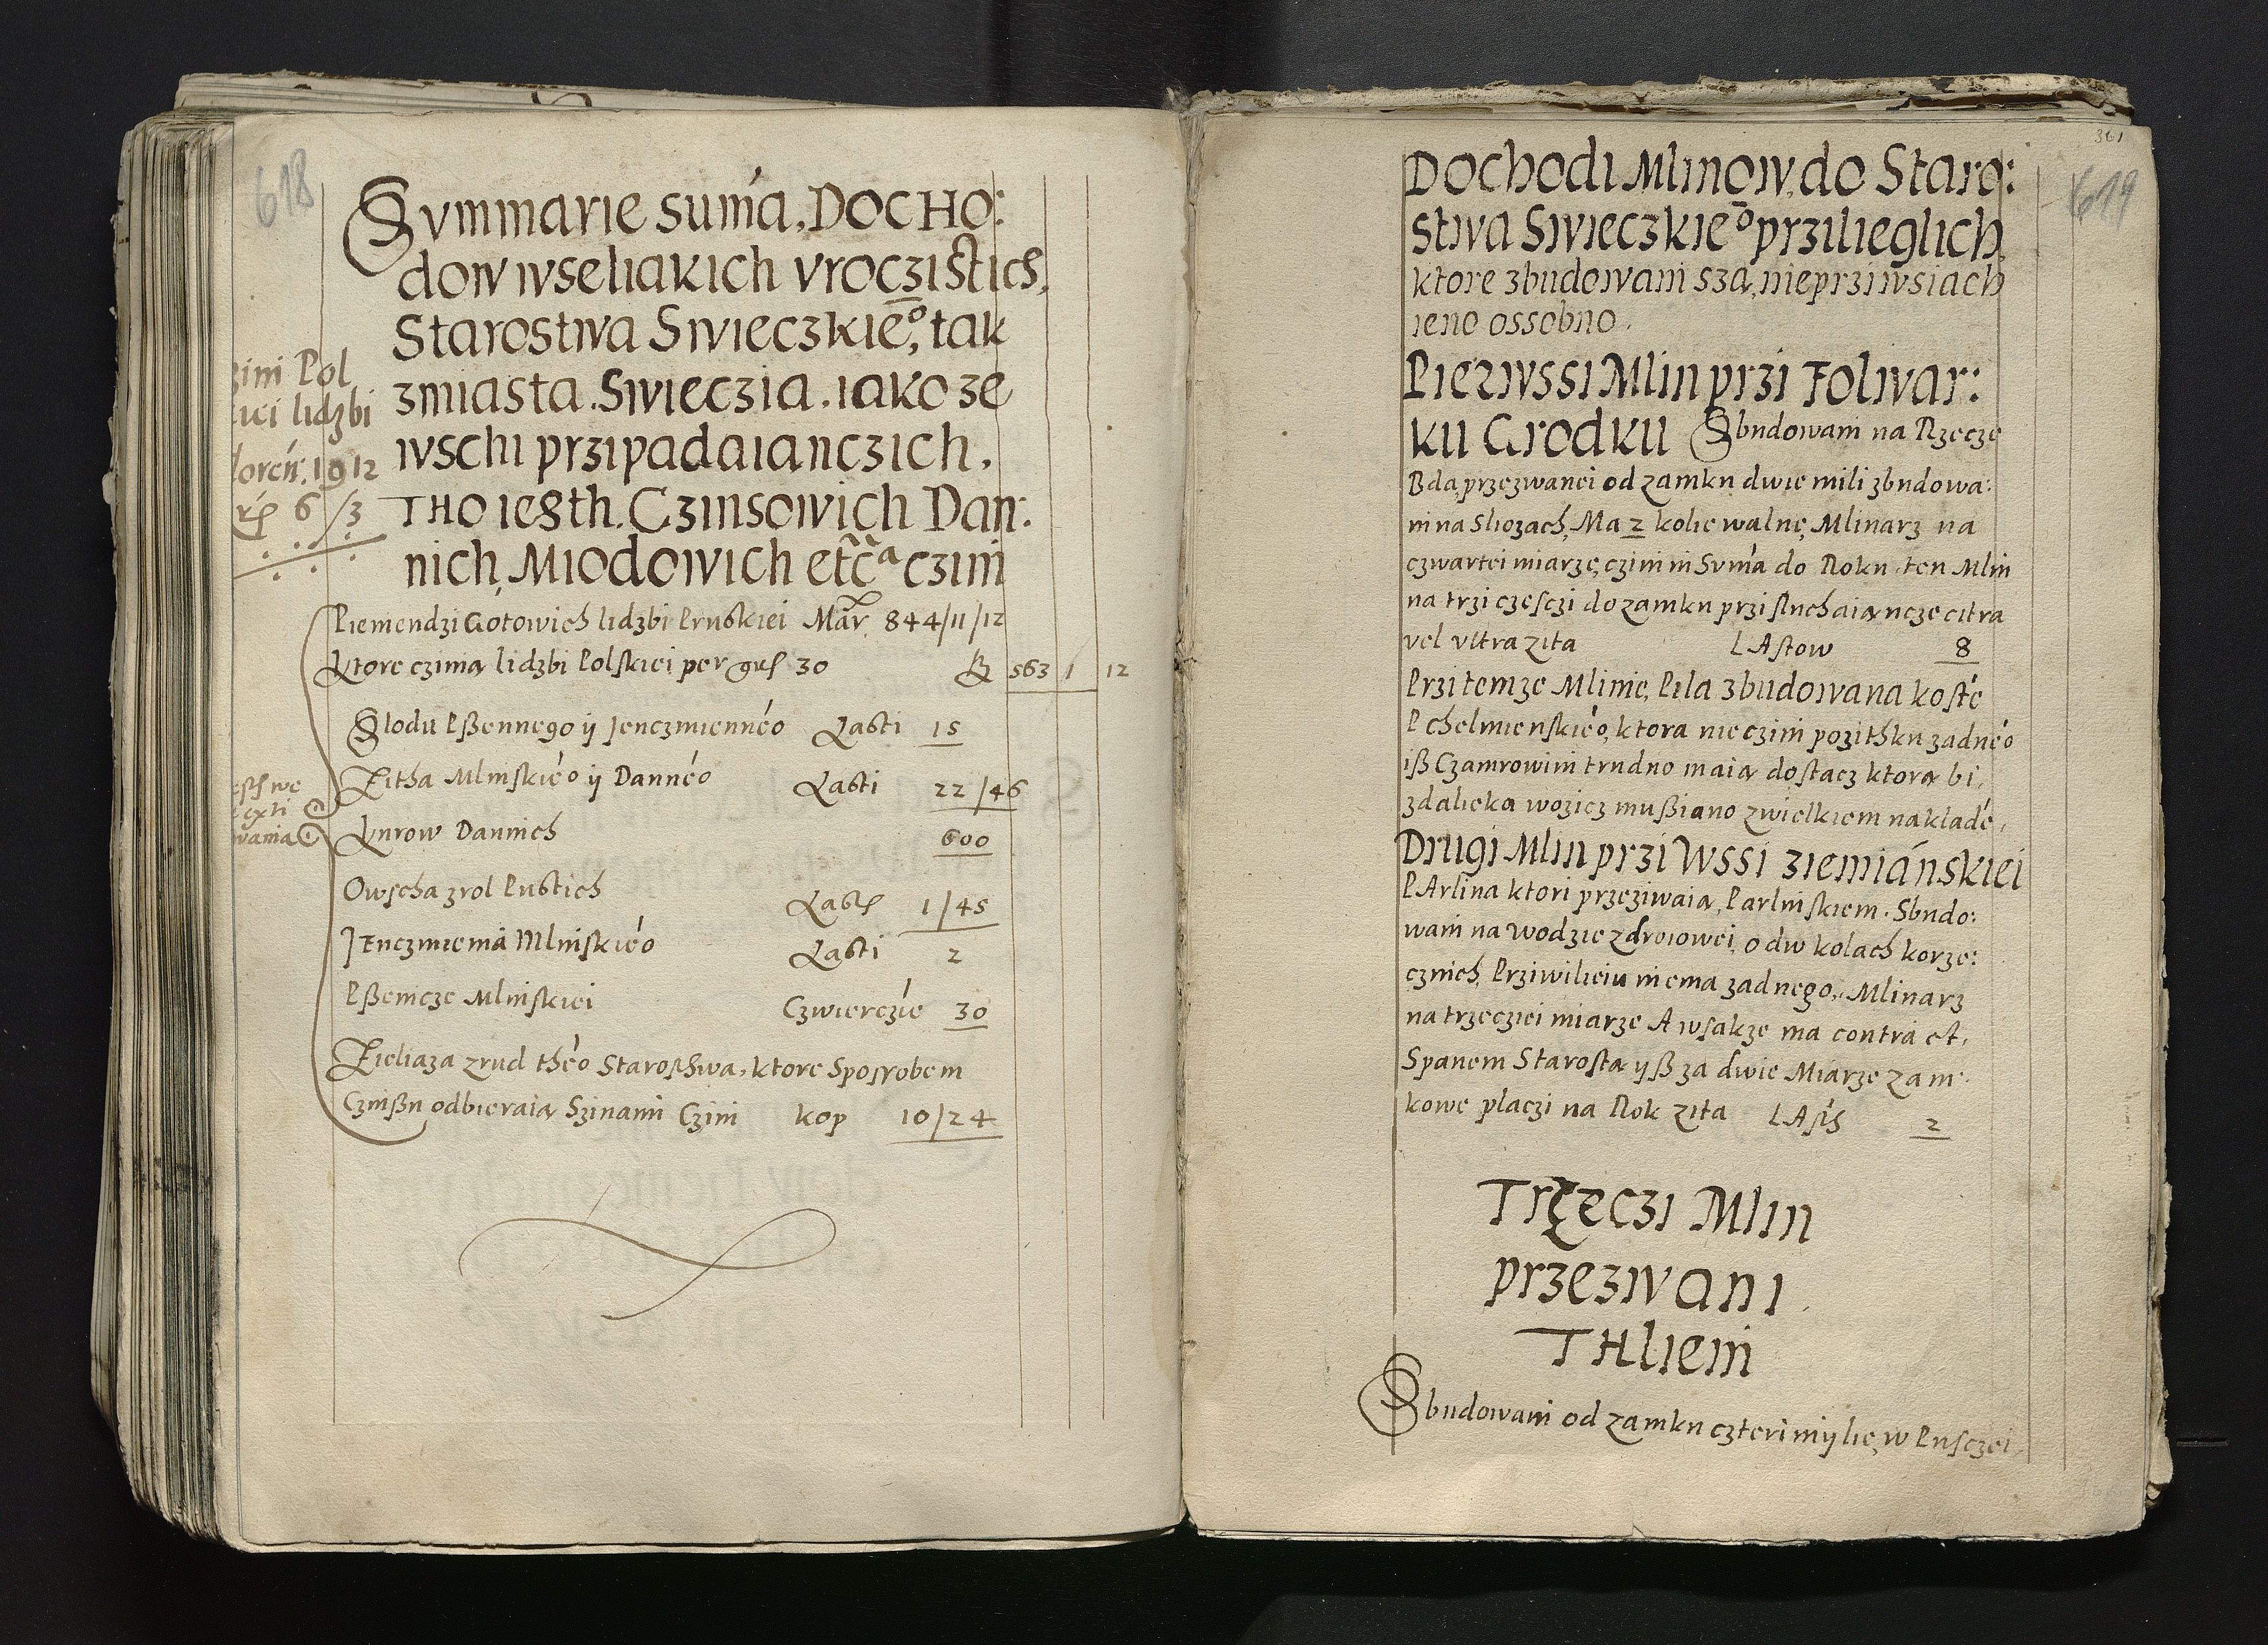 618
Summarie suma, DOCHO:
dow wseliakich vroczistich,
Starostwa Swieczkieo, tak
zmiasta. Swieczia. iako ze
wschi przipadaianczich.
THO iesth. Czinsowich Dan:
nich, Miodowich etca czini
Piemendzi Gotowich lidzbi Pruskiei Mar. 844/11/12
Ktore czinią lidzbi Polskiei per grs 30 563 1 12
Slodu Pßennego ÿ Jenczmienneo Lasti 15
Zitha Mlinskieo ÿ Danneo Lasti 22/46
Kurow Dannich 600
Owscha zrol Pustich Last 1/45
Jenczmienia Mlinskieo Lasti 2
Pßenicze Mlinskiei Czwierczie 30
Zieliaza zrud theo Starosthwa, ktore Sposrobem
Czinßu odbieraią Szinami Czini kop 10/24
zini Pol
lidzbi
1912
6 /3
wania
361
619
Dochodi Mlinow, do Staro:
stwa Swieczkieo przilieglich,
ktore zbudowani szą, nieprziwsiach
ieno ossobno.
Pierwssi Mlin przi Folwar:
ku Grodku Sbudowani na Rzecze
Bda, przezwanei od zamku dwie mili zbudowa:
ni na Sliozach, Ma 2 kolie walne, Mlinarz na
czwartei miarze, czini in Suma do Roku ten Mlin
na trzi czesczi do zamku przisluchaiąncze citra
vel vltra zita LAstow 8
Przitemze Mlinie, Pila zbudowana koste
P chelmienskieo, ktora nie czini pozithku zadneo
iß Czamrowini trudno maią dostacz ktorą bi,
zdalieka wozicz mußiano zwielkiem naklade,
Drugi Mlin przi Wssi ziemiánskiei
PArlina ktori przeziwaią, Parlinskiem. Sbudo:
wani na wodzie zdroiowei, o dw kolach korze:
cznich, Prziwilieiu niema zadnego, Mlinarz
na trzecziei miarze Awsakze ma contract,
Spanem Starostą ÿß za dwie Miarze zam
kowe placzi na Rok zita LAsts 2
Trzeczi Mlin
przezwani
THlieni
Sbudowani od zamku czteri mÿlie, w Pusczei,